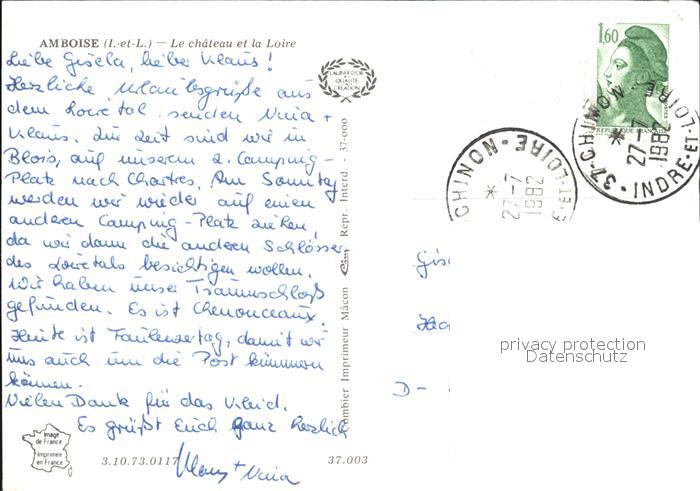 AMBOISE (I.-et-L.) — Le château et la Loire
Liebe Gisela, lieber Klaus!
Herzliche Urlaubsgrüße aus
dem Loiretal senden Nina +
Klaus. Zur Zeit sind wir in
Blois, auf unserem 2. Camping-
Platz nach Chartres. Am Sonntag
werden wir wieder auf einen
anderen Camping-Platz ziehen,
da wir dann die anderen Schlösser
des Loiretals besichtigen wollen.
Wir haben unser Traumschloß
gefunden. Es ist Chenonceaux.
Heute ist Faulenzertag, damit wir
uns auch um die Post kümmern
können.
Vielen Dank für das Kleid.
Es grüßt Euch ganz herzlich
Klaus + Nina
Image
de France
Imprimée
en France
3.10.73.0117
37.003
Combier Imprimeur Mâcon
Repr. Interd. - 37-000
LAURIER D'OR
DE LA
QUALITÉ
CRÉATION
1,60
REPUBLIQUE FRANÇAISE
CHINON
27-7
1982
37 CHINON
27-7
1982
INDRE-ET-LOIRE
Gis
D-
privacy protection
Datenschutz